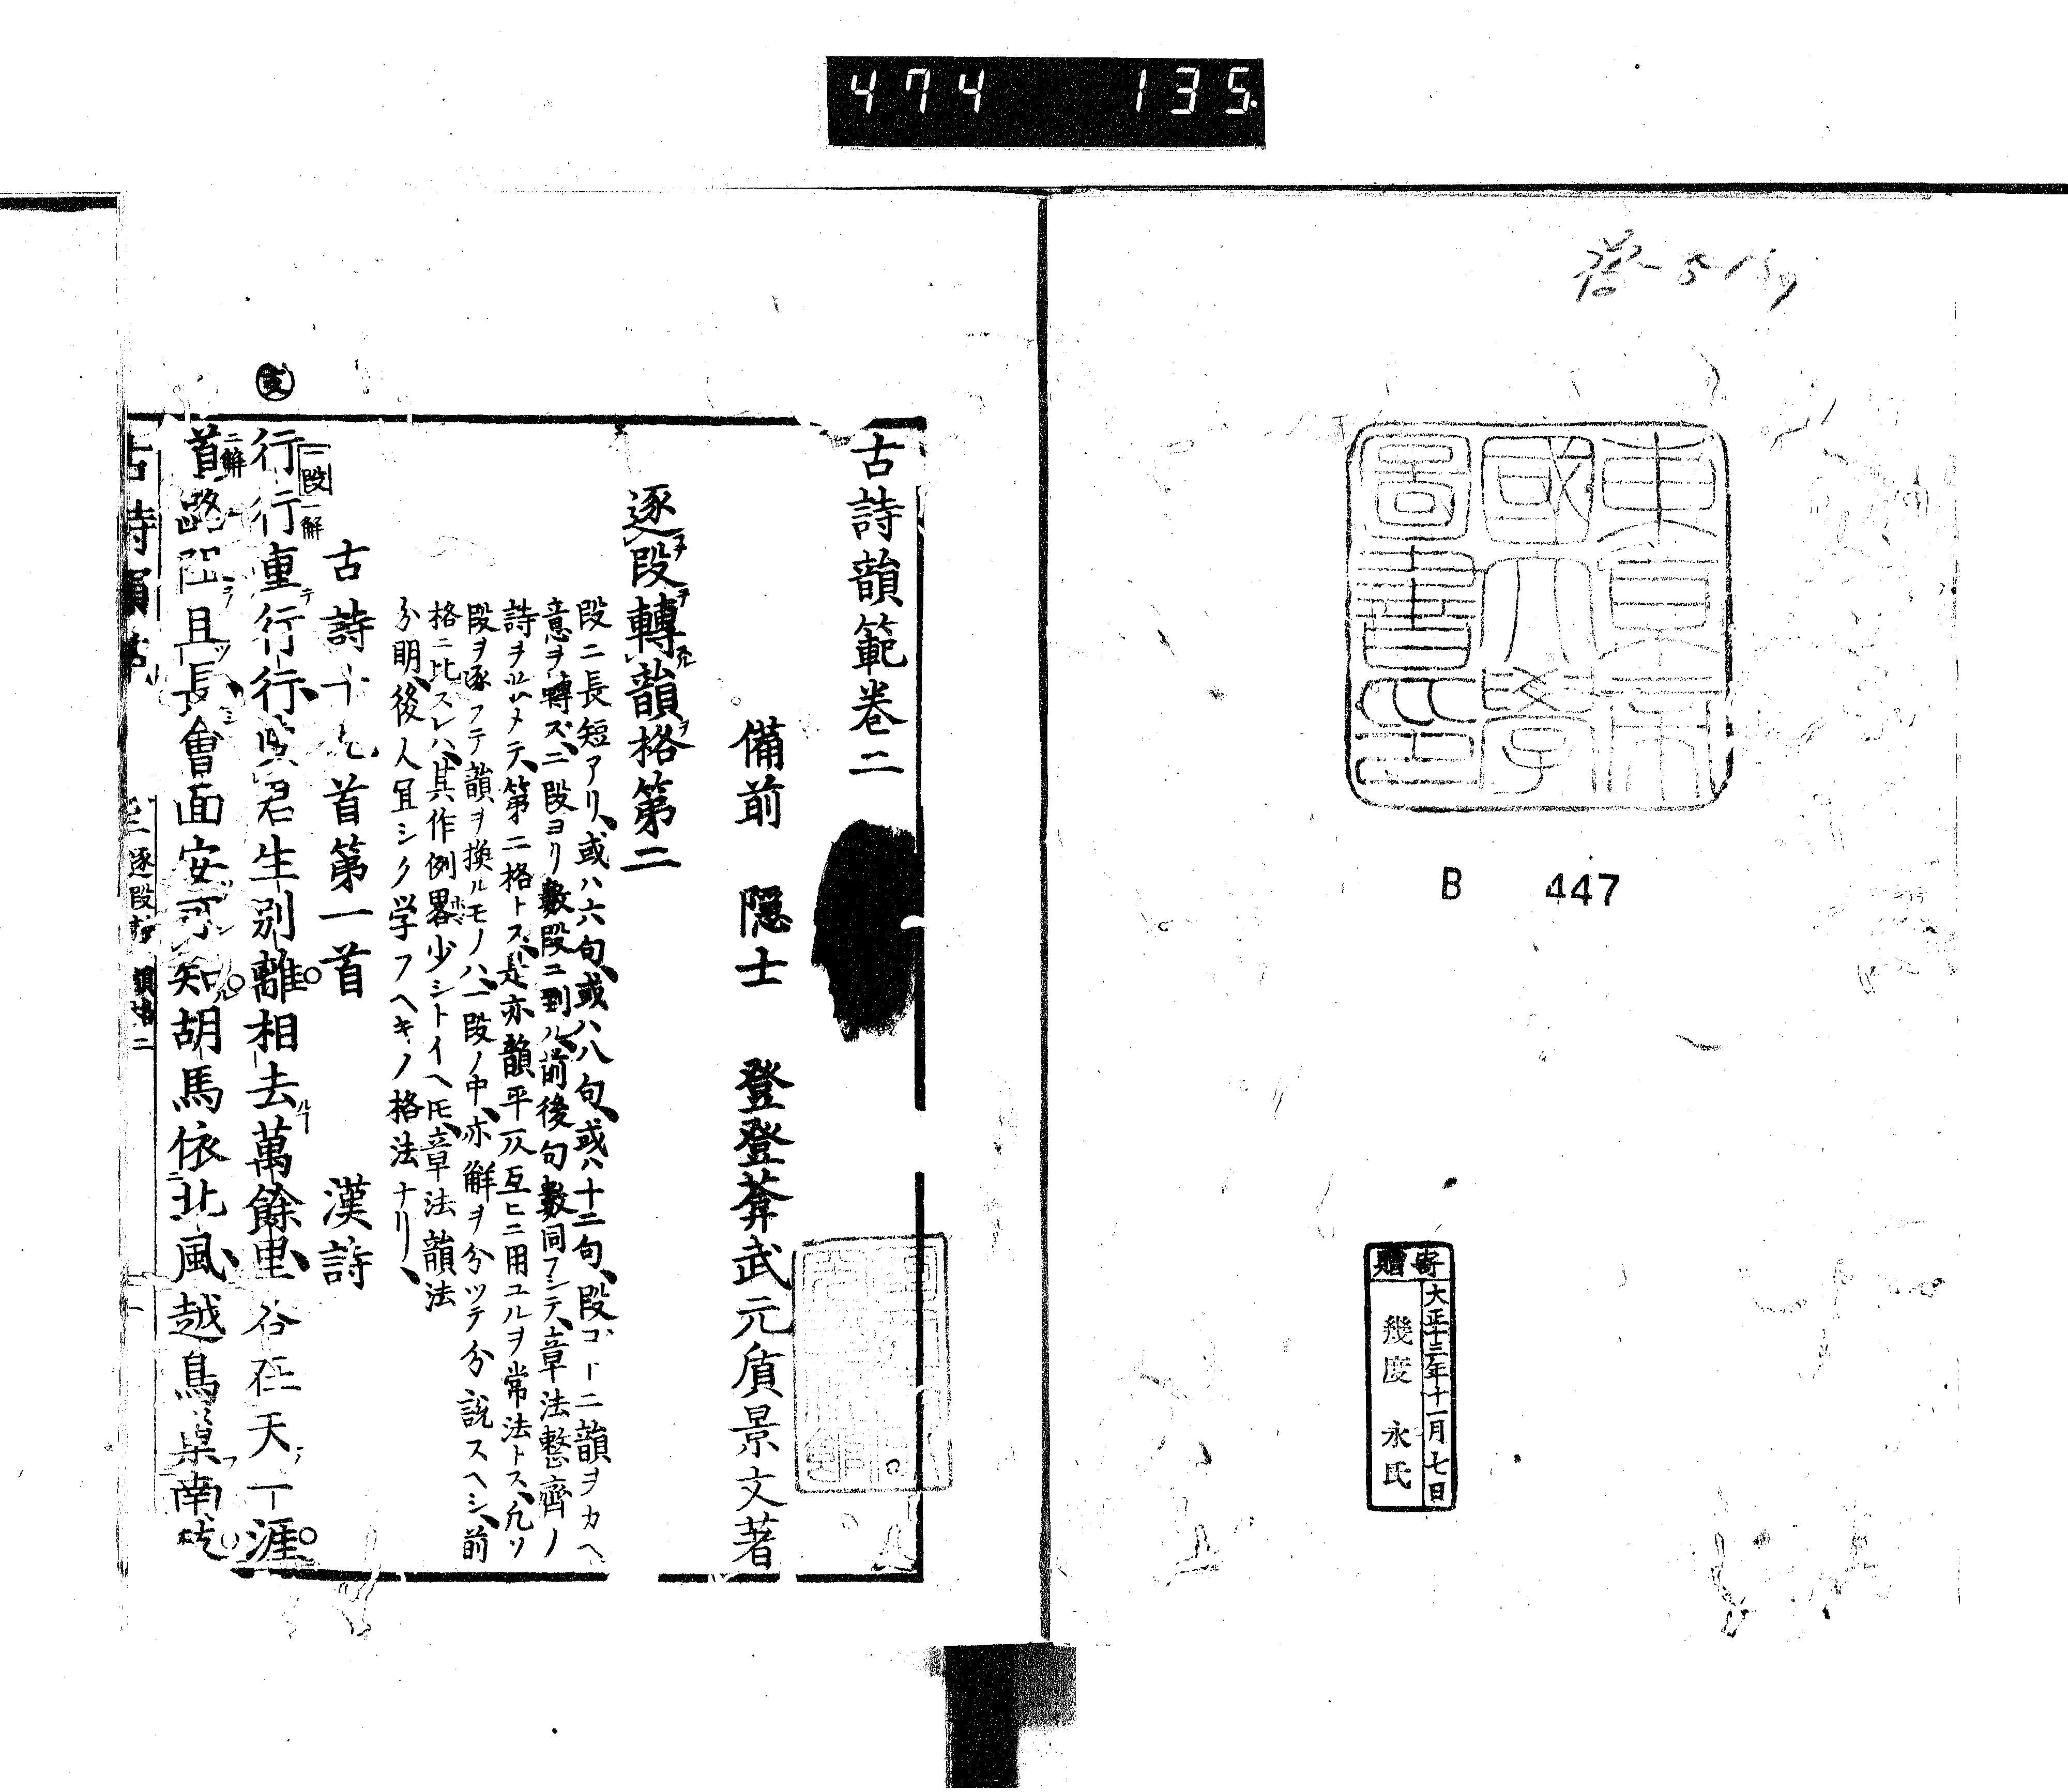 474 135
東京帝
國大學
圖書印
B 447
寄贈
大正十三年十一月七日
幾度永氏
古詩韻範卷二
備前 隱士 登登葊武元質景文著
逐段轉韻格第二
段ニ長短アリ、或ハ六句、或ハ八句、或ハ十二句、段ゴトニ韻ヲカヘ
意ヲ轉ズ、二段ヨリ數段ニ到ル、前後句數同フシテ、章法整齊ノ
詩ヲ以メテ、第二格トス、是亦韻平仄互ヒニ用ユルヲ常法トス、凡ソ
段ヲ逐フテ韻ヲ換ルモノハ、一段ノ中、亦解ヲ分ツテ分説スヘシ、前
格ニ比スレハ、其作例畧少シトイヘ𪜈、章法韻法
分明、後人宜シク学フヘキノ格法ナリ、
古詩十九首第一首 漢詩
一段 一解
行行重行行、與君生別離相去萬餘里、各在天一涯
支
二解
首路阻且長、會面安可知胡馬依北風、越鳥巢南枝
古詩韻範
逐段